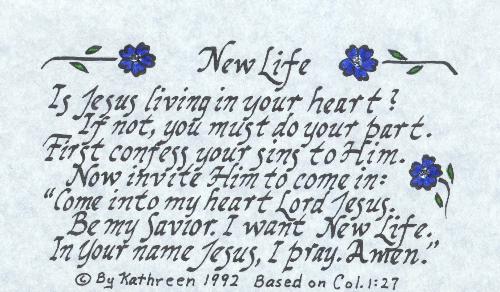 New Life
Is Jesus living in your heart?
If not, you must do your part.
First confess your sins to Him.
Now invite Him to come in:
"Come into my heart Lord Jesus.
Be my Savior. I want New Life.
In Your name Jesus, I pray. Amen."
© By Kathreen 1992 Based on Col. 1:27